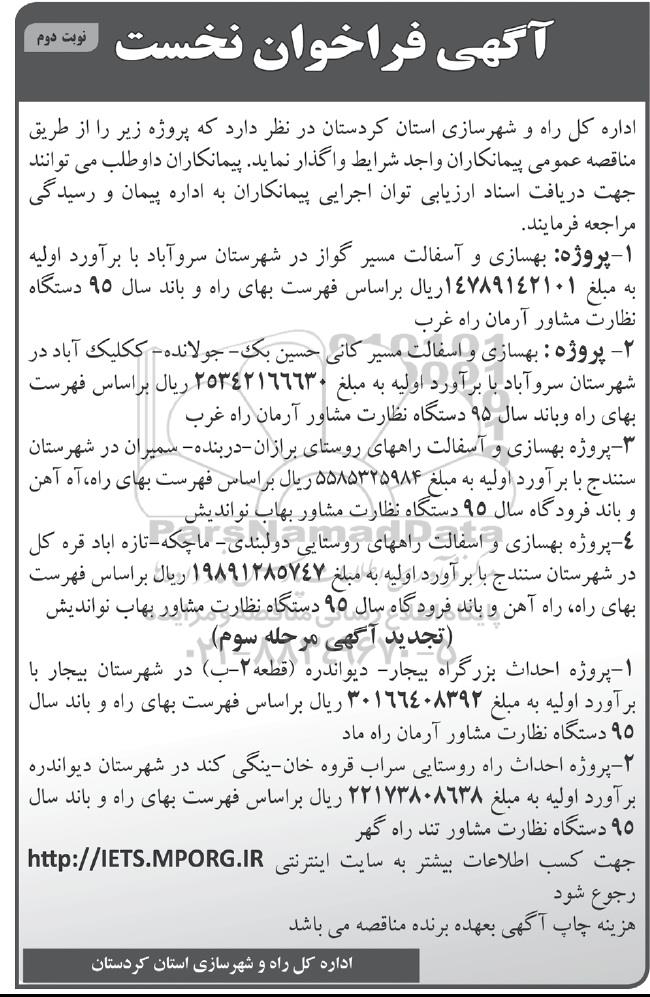 آگهی فراخوان نخست
نوبت دوم
اداره کل راه و شهرسازی استان کردستان در نظر دارد که پروژه زیر را از طریق
مناقصه عمومی پیمانکاران واجد شرایط واگذار نماید. پیمانکاران داوطلب می توانند
جهت دریافت اسناد ارزیابی توان اجرایی پیمانکاران به اداره پیمان و رسیدگی
مراجعه فرمایند.
۱-پروژه: بهسازی و آسفالت مسیر گواز در شهرستان سروآباد با برآورد اولیه
به مبلغ ۱۴۷۸۹۱۴۲۱۰۱ریال براساس فهرست بهای راه و باند سال ۹۵ دستگاه
نظارت مشاور آرمان راه غرب
۲- پروژه : بهسازی و اسفالت مسیر کانی حسین بک- جولانده- ککلیک آباد در
شهرستان سروآباد با برآورد اولیه به مبلغ ۲۵۳۴۲۱۶۶۶۳۰ ریال براساس فهرست
بهای راه وباند سال ۹۵ دستگاه نظارت مشاور آرمان راه غرب
۳-پروژه بهسازی و آسفالت راههای روستای برازان-دربنده- سمیران در شهرستان
سنندج با برآورد اولیه به مبلغ ۵۵۸۵۳۲۵۹۸۴ ریال براساس فهرست بهای راه،آه آهن
و باند فرودگاه سال ۹۵ دستگاه نظارت مشاور بهاب نواندیش
ParsNamadData
۴-پروژه بهسازی و اسفالت راههای روستایی دولبندی- ماچکه-تازه اباد قره کل
در شهرستان سنندج با برآورد اولیه به مبلغ ۱۹۸۹۱۲۸۵۷۴۷ ریال براساس فهرست
بهای راه، راه آهن و باند فرودگاه سال ۹۵ دستگاه نظارت مشاور بهاب نواندیش
پایگاه اطلاع رسانی مناقصه و مزایده
(تجدید آگهی مرحله سوم)
۰۲۱-۸۸۳۴۹۶۷۰-۵
۱-پروژه احداث بزرگراه بیجار- دیواندره (قطعه۲-ب) در شهرستان بیجار با
برآورد اولیه به مبلغ ۳۰۱۶۶۴۰۸۳۹۲ ریال براساس فهرست بهای راه و باند سال
۹۵ دستگاه نظارت مشاور آرمان راه ماد
۲-پروژه احداث راه روستایی سراب قروه خان-ینگی کند در شهرستان دیواندره
برآورد اولیه به مبلغ ۲۲۱۷۳۸۰۸۶۳۸ ریال براساس فهرست بهای راه و باند سال
۹۵ دستگاه نظارت مشاور تند راه گهر
جهت کسب اطلاعات بیشتر به سایت اینترنتی http://IETS.MPORG.IR
رجوع شود
هزینه چاپ آگهی بعهده برنده مناقصه می باشد
اداره کل راه و شهرسازی استان کردستان